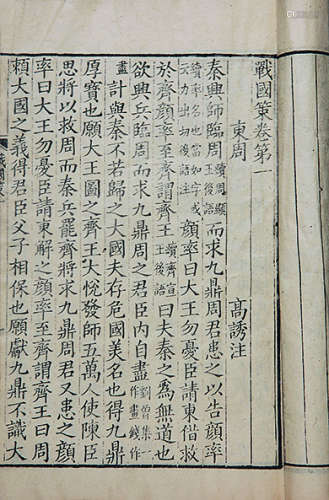 戰國策卷第一
東周
高誘注
秦興師臨周續周顯王後語而求九鼎周君患之以告顏率
續率名當如字或云力出切後語注顏率曰大王勿憂臣請東借救
於齊顏率至齊謂齊王續齊宣王後語曰夫秦之為無道也
欲興兵臨周而求九鼎周之君臣內自盡劉曾集一作畫錢作
盡計與秦不若歸之大國夫存危國美名也得九鼎
厚寶也願大王圖之齊王大悅發師五萬人使陳臣
思將以救周而秦兵罷齊將求九鼎周君又患之顏
率曰大王勿憂臣請東解之顏率至齊謂齊王曰周
賴大國之義得君臣父子相保也願獻九鼎不識大